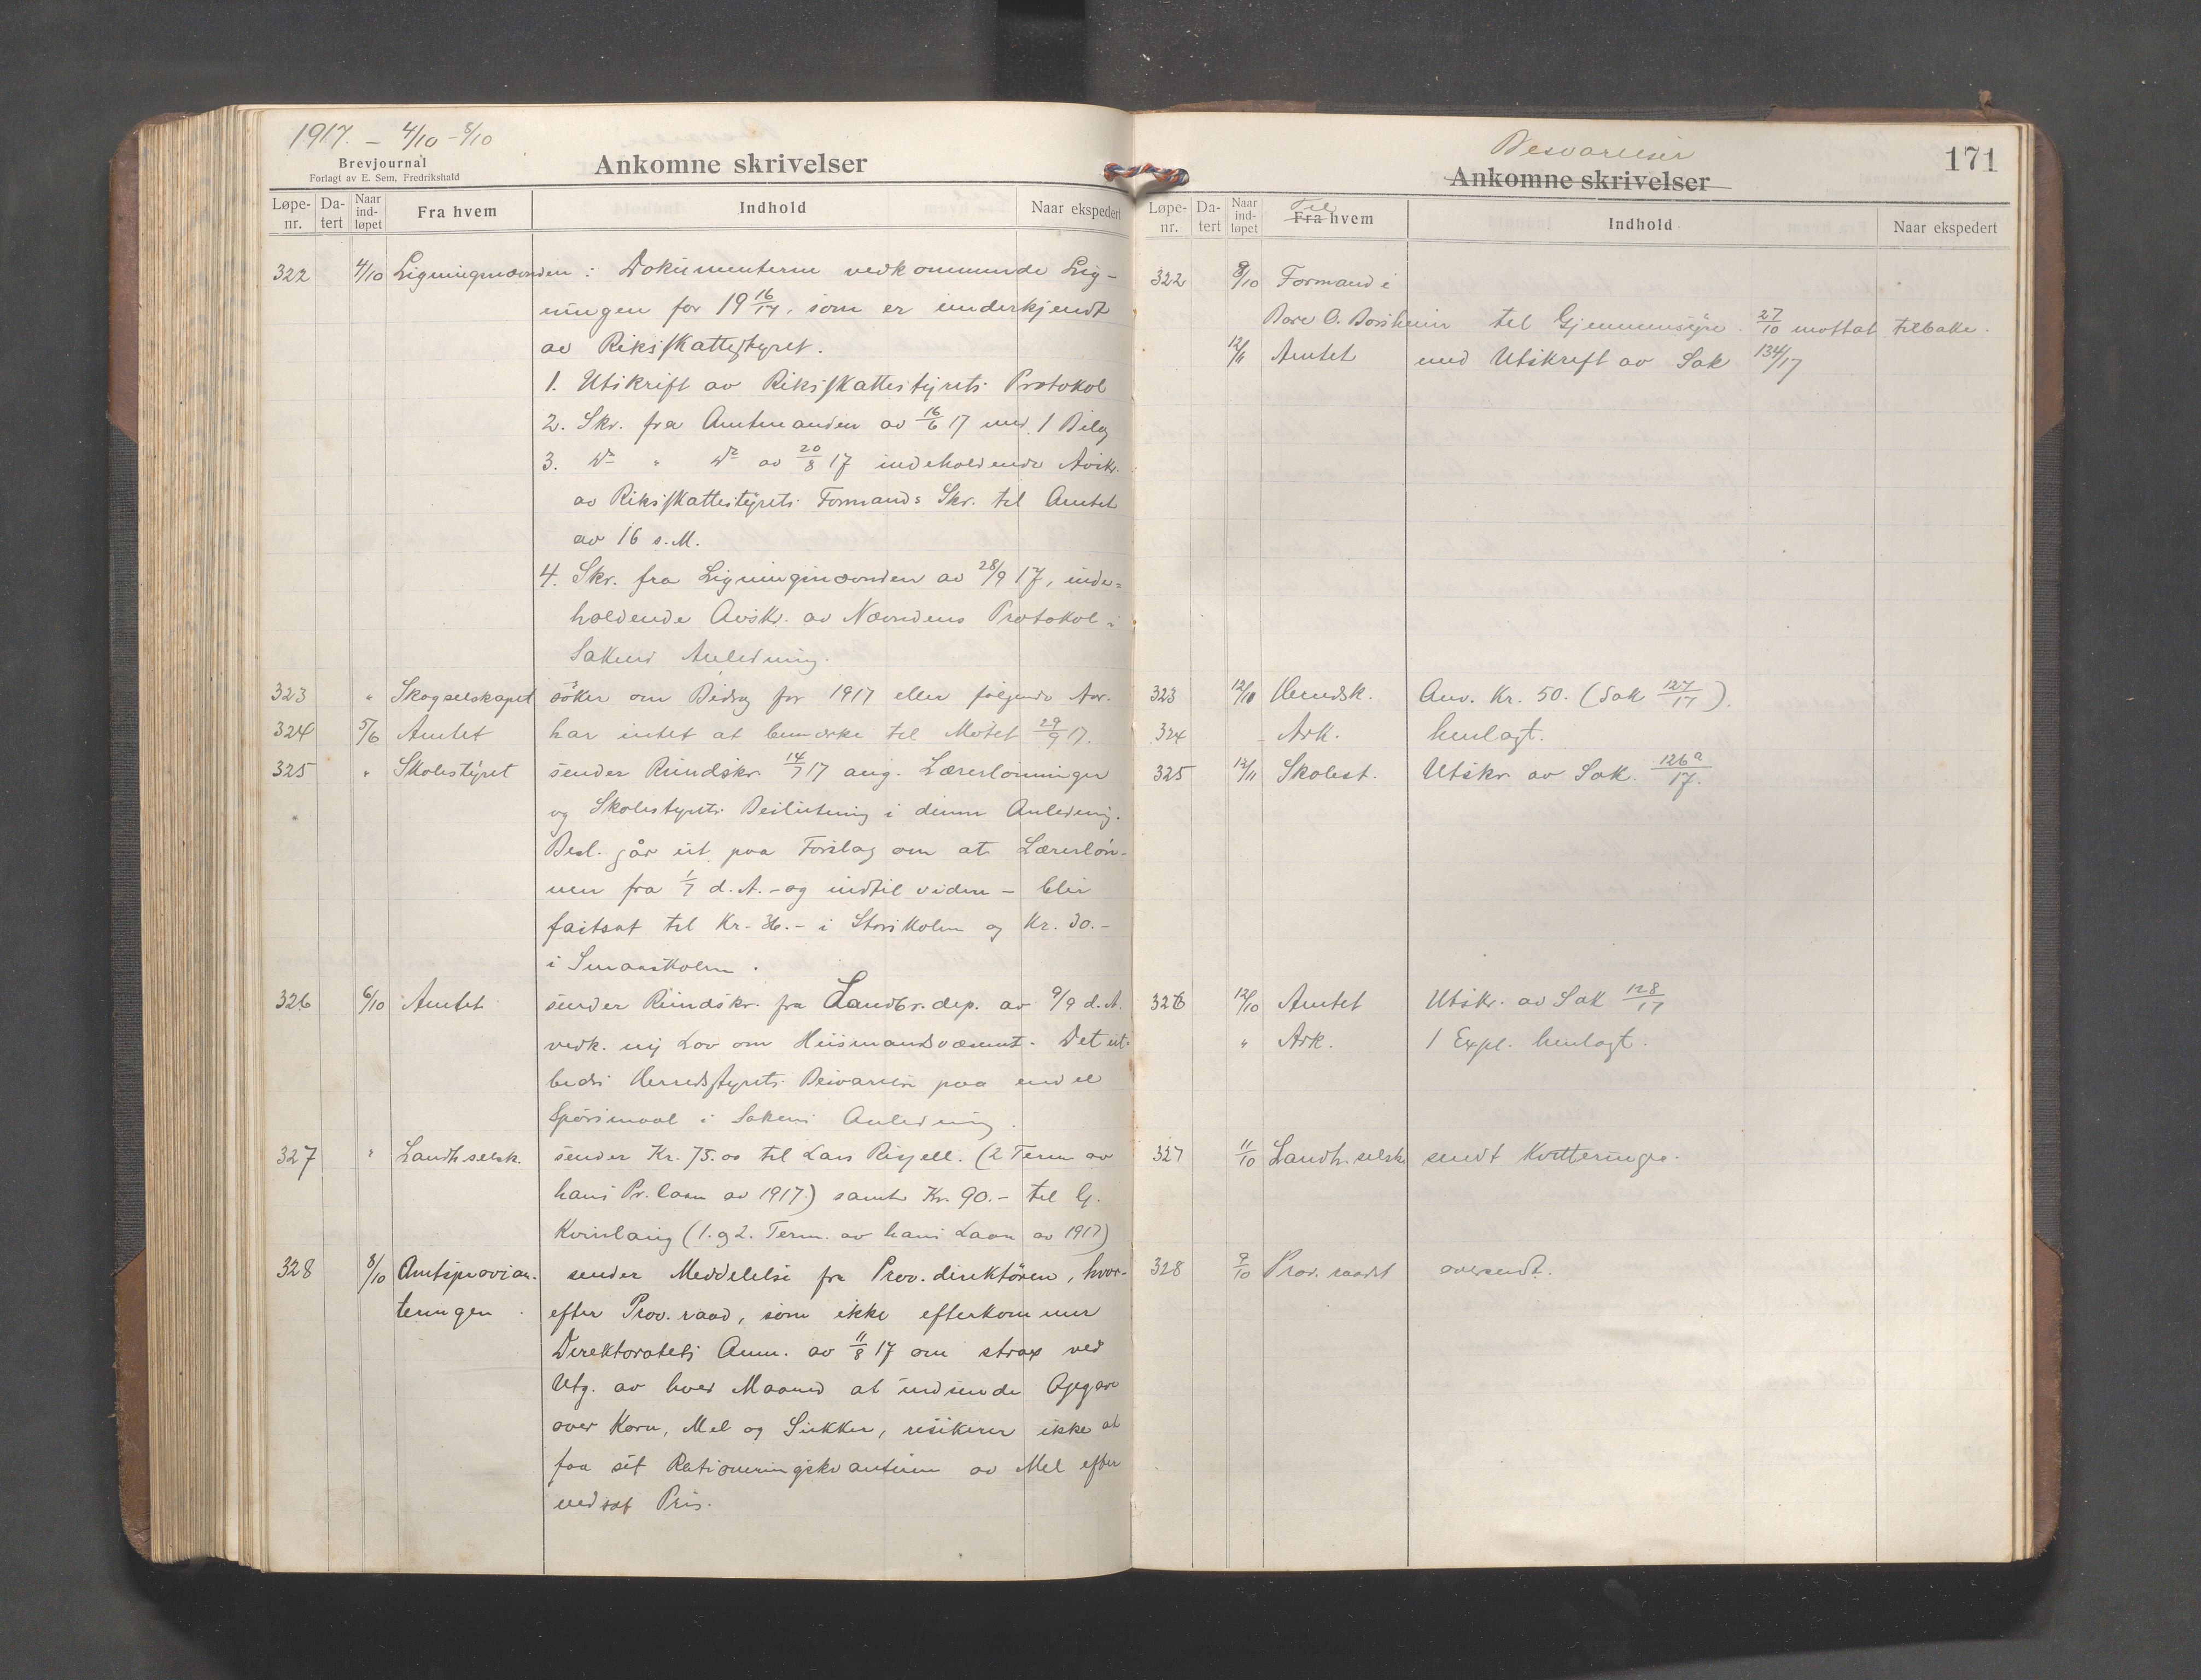 1917. – 4/10 – 8/10
Brevjournal
Forlagt av E. Sem, Fredrikshald
Ankomne skrivelser
Løpe-nr. Da-tert Naar ind-løpet Fra hvem Indhold Naar ekspedert
322 4/10 Ligningsnævnden : Dokumenterne vedkommende Lig-
ningen for 19 16/17, som er underkjendt
av Riksskattestyret.
1. Utskrift av Riksskattestyrets Protokol
2. Skr. fra Amtmanden av 16/6 17 med 1 Bilag
3. Do " Do av 20/8 17 indeholdende Avskr.
av Riksskattestyrets Formands Skr. til Amtet
av 16 s. M.
4. Skr. fra Ligningsnævnden av 28/9 17, inde-
holdende Avskr. av Nævndens Protokol i
Sakens Anledning.
323 " Skogselskapet søker om Bidrag for 1917 eller følgende Aar.
324 5/6 Amtet har intet at bemerke til Møtet 29/9 17.
325 " Skolestyret sender Rundskr. 14/7 17 ang. Lærerlønninger
og Skolestyrets Beslutning i denne Anledning.
Besl. går ut paa Forslag om at Lærerløn-
nen fra 1/7 d. A. – og indtil videre – blir
fastsat til Kr. 36.– i Storskolen og Kr. 30.–
i Smaaskolen.
326 6/10 Amtet sender Rundskr. fra Landbr. dep. av 9/9 d. A.
vedk. ny Lov om Husmandsvæsenet. Det ut-
bedes Herredsstyrets Besvarelse paa endel
Spørsmaal i Sakens Anledning.
327 " Landh. selsk. sender Kr. 75.00 til Lars Risjell. (2 Term av
hans Pr. laan av 1917.) samt Kr. 90.– til G.
Kvinlaug (1. og 2. Term. av hans Laan av 1917)
328 8/10 Amtsprovian- sender Meddelelse fra Prov. direktøren, hvor-
teringen. efter Prov. raad, som ikke efterkommer
Direktoratets Anm. av 11/8 17 om strax ved
Utg. av hver Maaned at indsende Opgave
over Korn, Mel og Sukker, risikerer ikke at
faa sit Rationeringskvantum av Mel efter
nedsat Pris.
Besvarelser
171
Ankomne skrivelser
Løpe-nr. Da-tert Naar ind-løpet Fra Til hvem Indhold Naar ekspedert
322 8/10 Formand i
Bore O. Borsheim til Gjennemsyn. 27/10 mottat tilbake.
12/11 Amtet med Utskrift av Sak 134/17
323 12/10 Herredsk. Anv. Kr. 50. (Sak 127/17).
324 – Ark. henlagt.
325 12/11 Skolest. Utskr. av Sak. 126a/17.
326 12/10 Amtet Utskr. av Sak 128/17
" Ark. 1 Expl. henlagt.
327 11/10 Landh. selsk. sendt Kvitteringer.
328 9/10 Prov. raadet oversendt.